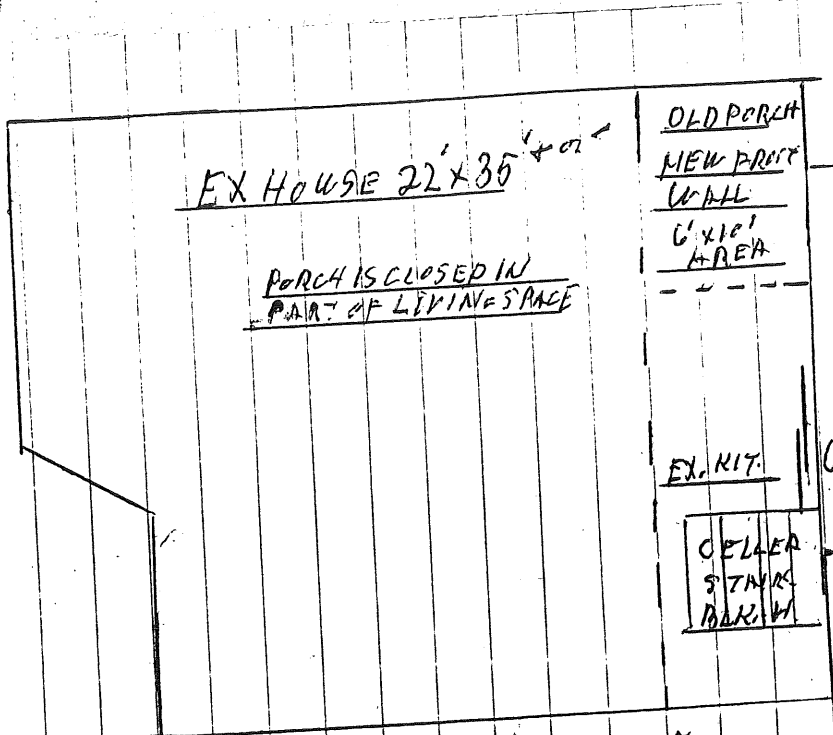 EX HOUSE 22' X 35' + or -
PORCH IS CLOSED IN
PART OF LIVING SPACE
OLD PORCH
NEW FRONT
WALL
6' X 10'
AREA
EX. KIT.
CELLER
STAIRS